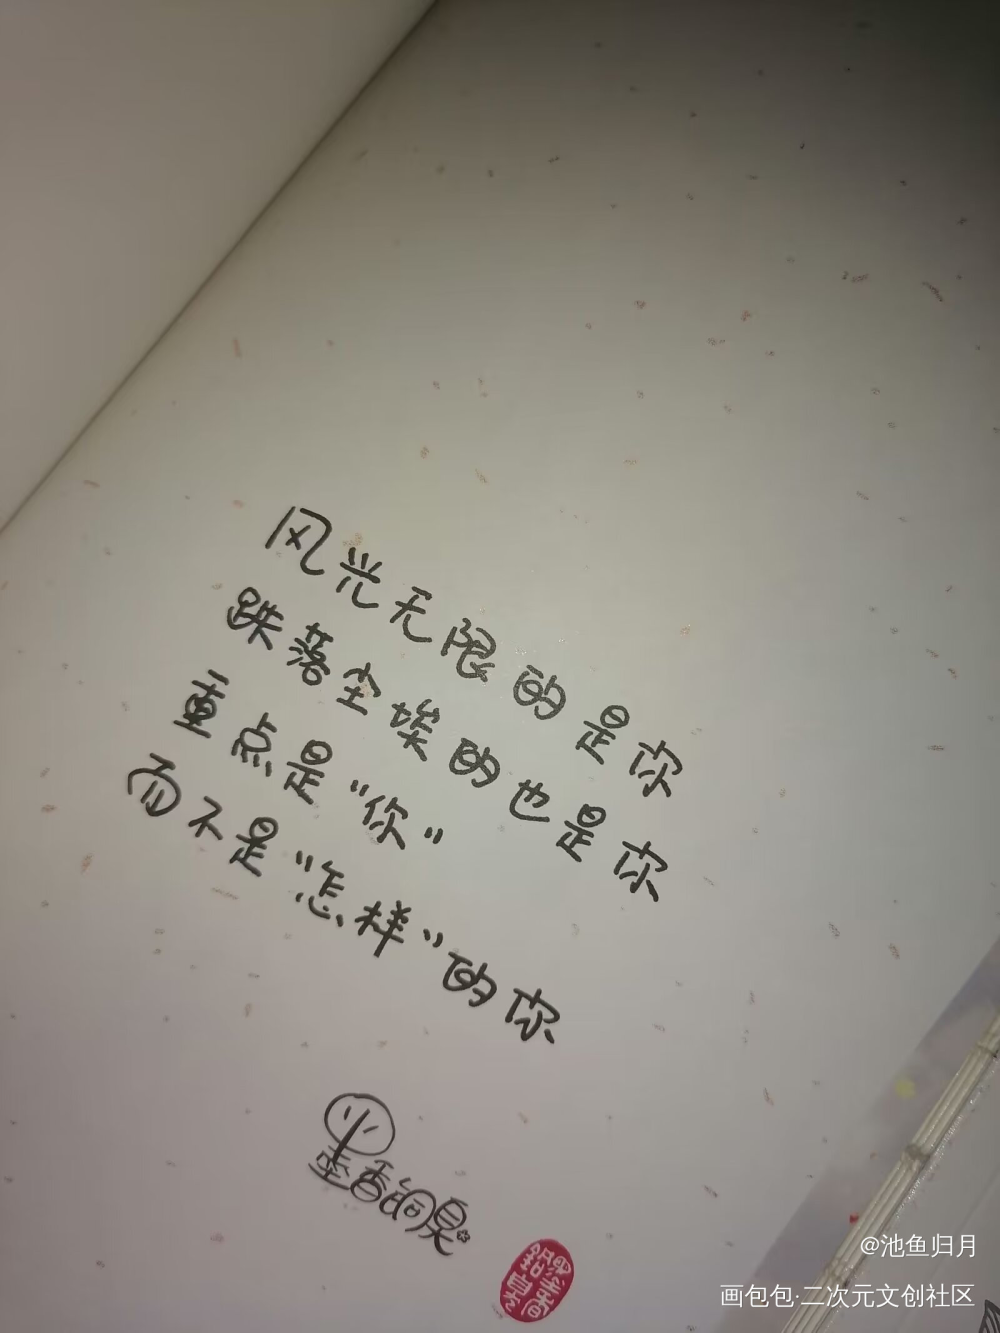 风光无限的是你
跌落尘埃的也是你
重点是“你”
而不是“怎样”的你
墨香铜臭
墨香铜臭
@池鱼归月
画包包·二次元文创社区